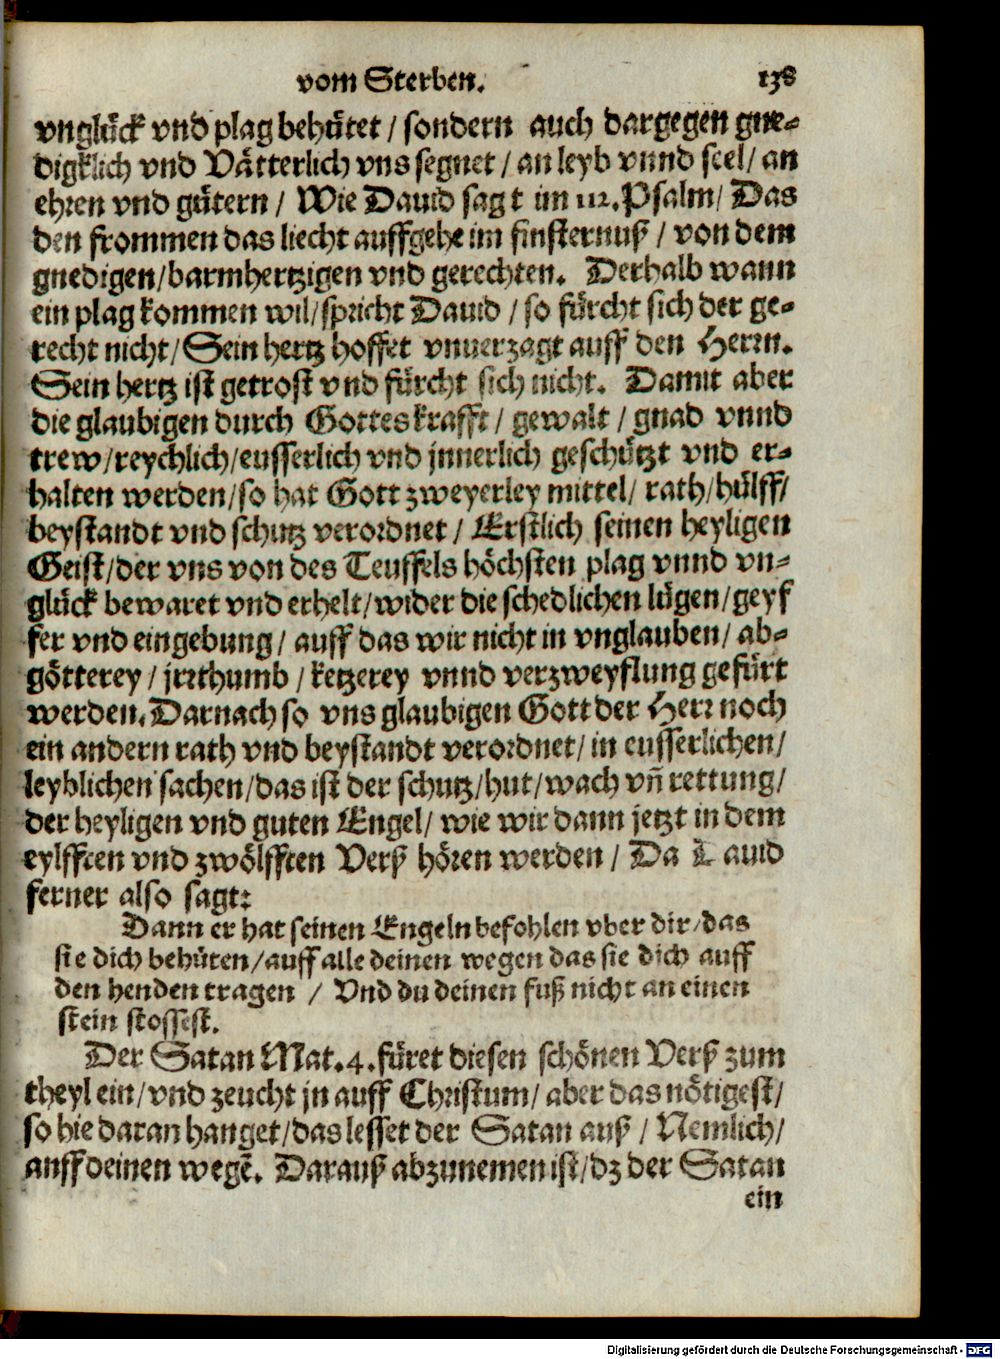 vom Sterben. 138
vnglück vnd plag behütet / sondern auch dargegen gne-
digklich vnd Vätterlich vns segnet / an leyb vnnd seel / an
ehren vnd gütern / Wie Dauid sagt im 112. Psalm / Das
den frommen das liecht auffgehe im finsternuß / von dem
gnedigen / barmhertzigen vnd gerechten. Derhalb wann
ein plag kommen wil / spricht Dauid / so fürcht sich der ge-
recht nicht / Sein hertz hoffet vnuerzagt auff den Herrn.
Sein hertz ist getrost vnd fürcht sich nicht. Damit aber
die glaubigen durch Gottes krafft / gewalt / gnad vnnd
trew / reychlich / eusserlich vnd jnnerlich geschützt vnd er-
halten werden / so hat Gott zweyerley mittel / rath / hülff /
beystandt vnd schutz verordnet / Erstlich seinen heyligen
Geist / der vns von des Teuffels höchsten plag vnnd vn-
glück bewaret vnd erhelt / wider die schedlichen lügen / geyf
fer vnd eingebung / auff das wir nicht in vnglauben / ab-
götterey / jrrthumb / ketzerey vnnd verzweyflung gefürt
werden. Darnach so vns glaubigen Gott der Herr noch
ein andern rath vnd beystandt verordnet / in eusserlichen /
leyblichen sachen / das ist der schutz / hut / wach vñ rettung /
der heyligen vnd guten Engel / wie wir dann jetzt in dem
eylfften vnd zwölfften Verß hören werden / Da Dauid
ferner also sagt:
Dann er hat seinen Engeln befohlen vber dir / das
sie dich behüten / auff alle deinen wegen das sie dich auff
den henden tragen / Vnd du deinen fuß nicht an einen
stein stossest.
Der Satan Mat. 4. füret diesen schönen Verß zum
theyl ein / vnd zeucht jn auff Christum / aber das nötigest /
so hie daran hanget / das lesset der Satan auß / Nemlich /
auff deinen wegẽ. Darauß abzunemen ist / dz der Satan
ein
Digitalisierung gefördert durch die Deutsche Forschungsgemeinschaft - DFG